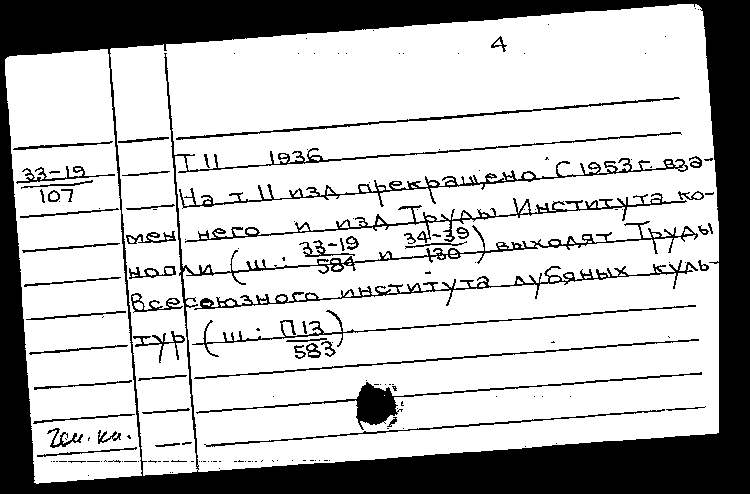 4
33-19
107
Т 11 1936
На т. 11 изд. прекращено. С 1953 г. вза-
мен него и изд. Труды Института ко-
нопли (ш.: 33-19/584 и 34-39/130) выходят Труды
Всесоюзного института лубяных куль-
тур (ш: П13/583).